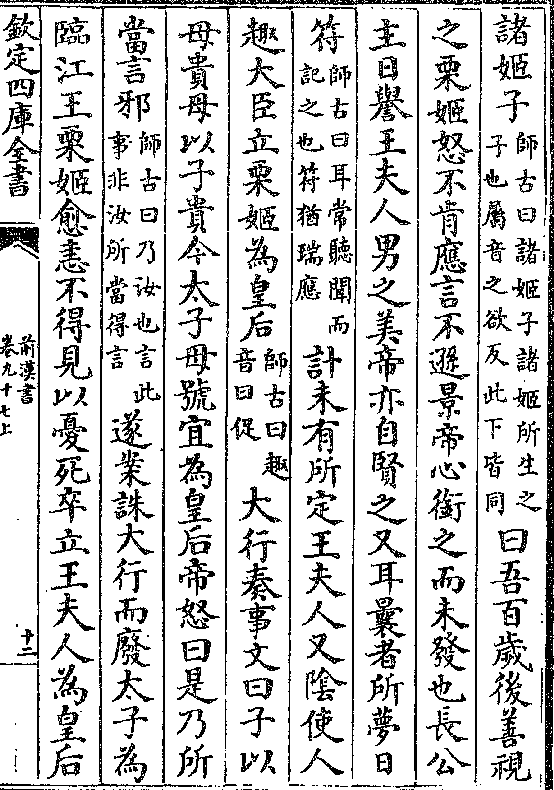 諸姬子師古曰諸姬子諸姬所生之子也屬音之欲反此下皆同曰吾百歲後善視
之栗姬怒不肯應言不遜景帝心銜之而未發也長公
主日譽王夫人男之美帝亦自賢之又耳曩者所夢日
符師古曰耳常聽聞而記之也符猶瑞應計未有所定王夫人又陰使人
趣大臣立栗姬為皇后師古曰趣音曰促大行奏事文曰子以
母貴母以子貴今太子母號宜為皇后帝怒曰是乃所
當言邪師古曰乃汝也言此事非汝所當得言遂案誅大行而廢太子為
臨江王栗姬愈恚不得見以憂死卒立王夫人為皇后
欽定四庫全書
前漢書
卷九十七上
十二